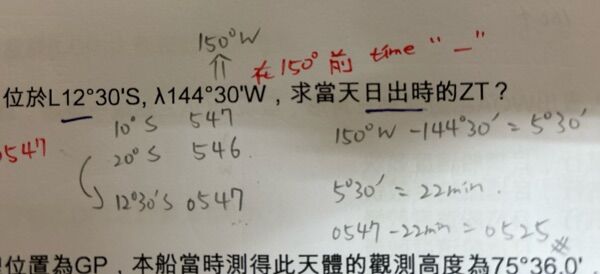 150°W
⇑ 在150°前 time "－"
位於L12°30'S, λ144°30'W，求當天日出時的ZT？
0547
10°S 547
20°S 546
12°30'S 0547
150°W - 144°30' = 5°30'
5°30' = 22min.
0547 - 22min = 0525
位置為GP，本船當時測得此天體的觀測高度為75°36.0'